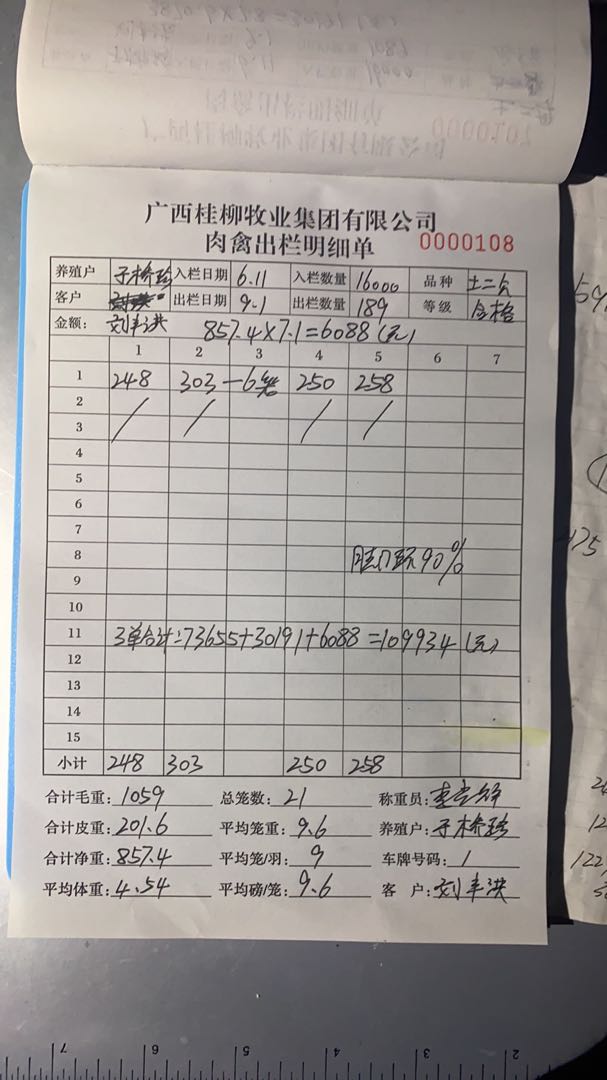 广西桂柳牧业集团有限公司
肉禽出栏明细单 0000108
养殖户 入栏日期 6.11 入栏数量 16000 品种 土二
客户 出栏日期 9.1 出栏数量 189 等级 合格
金额: 刘丰洪 857.4×7.1=6088(元)
1 2 3 4 5 6 7
1 248 303-6笼 250 258
2 / / / /
3
4
5
6
7
8 90%
9
10
11 3单合计:73655+30191+6088=109934(元)
12
13
14
15
小计 248 303 250 258
合计毛重: 1059 总笼数: 21 称重员:
合计皮重: 201.6 平均笼重: 9.6 养殖户:
合计净重: 857.4 平均笼/羽: 9 车牌号码: 1
平均体重: 4.54 平均磅/笼: 9.6 客 户: 刘丰洪
7 6 5 4 3 2